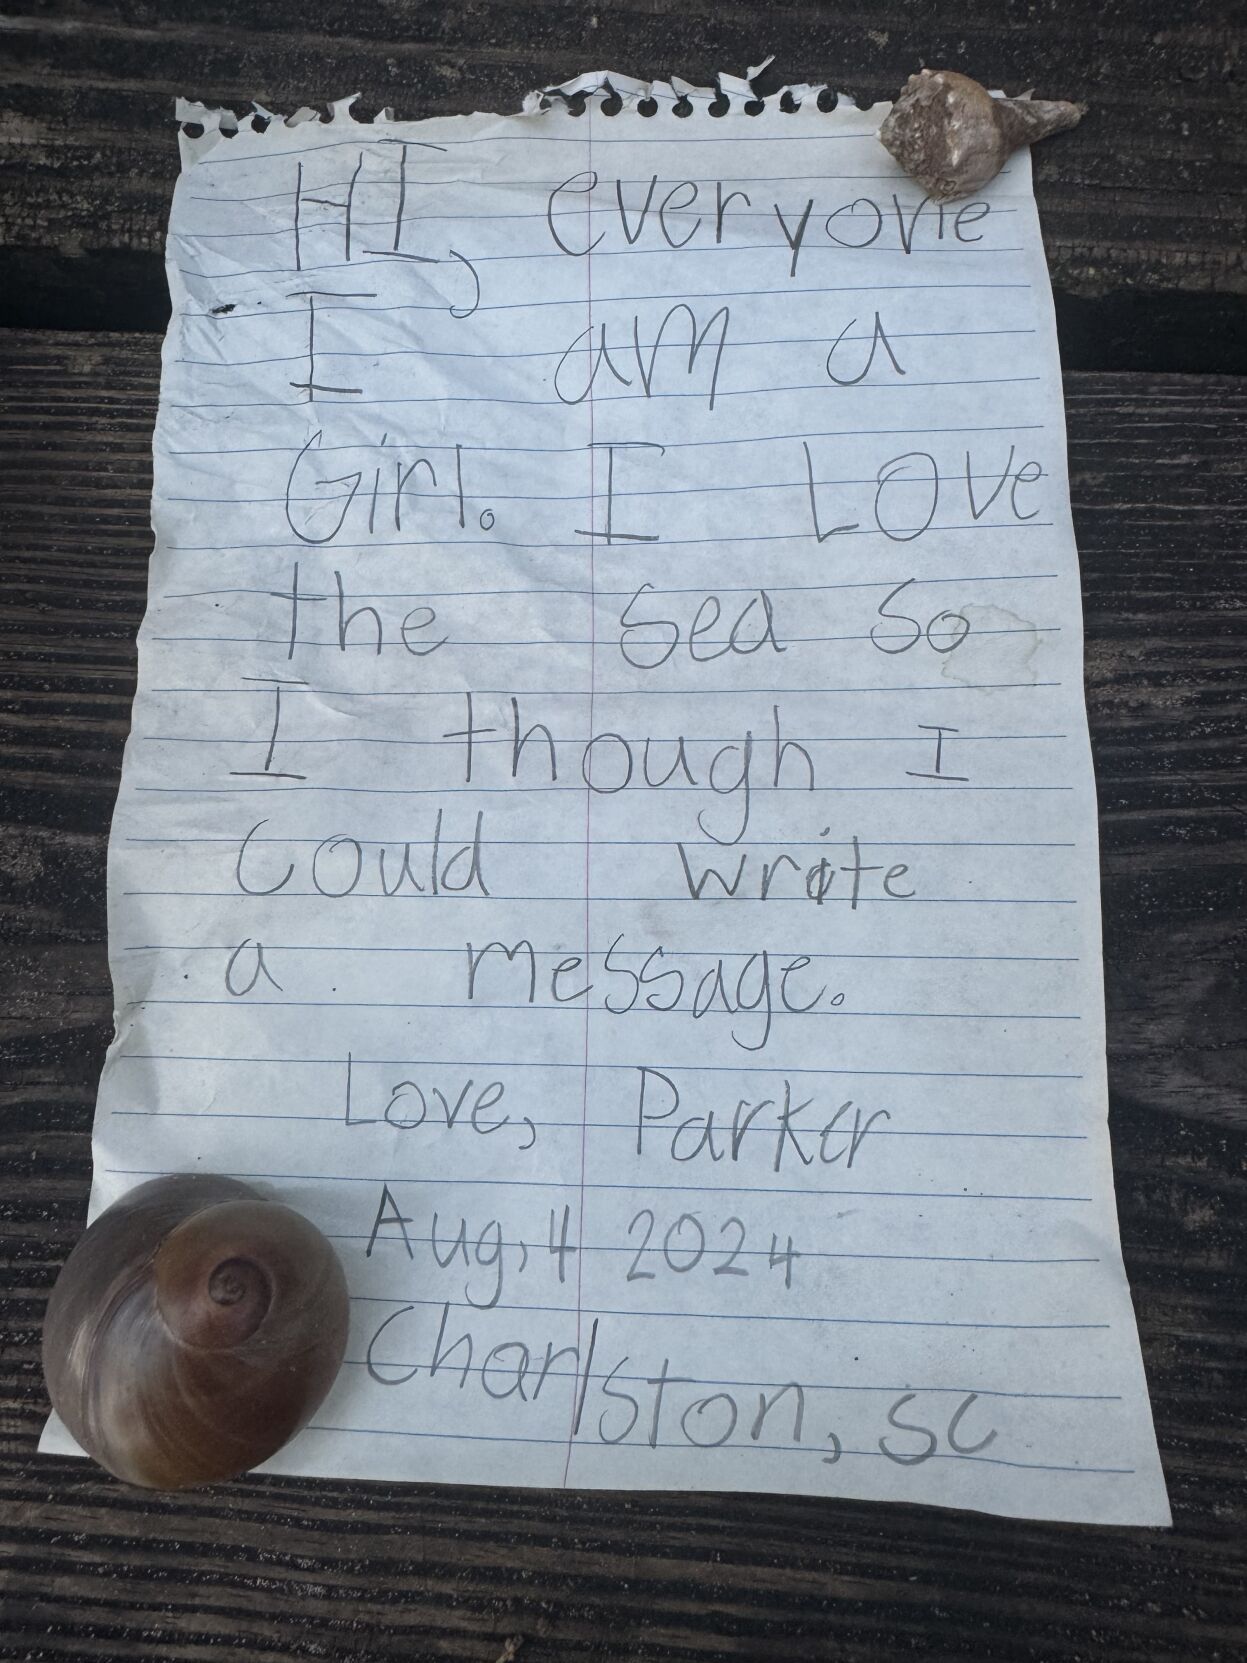 HI, everyone
I am a
Girl. I Love
the sea so
I though I
could write
a message.
Love, Parker
Aug, 4 2024
Charlston, SC